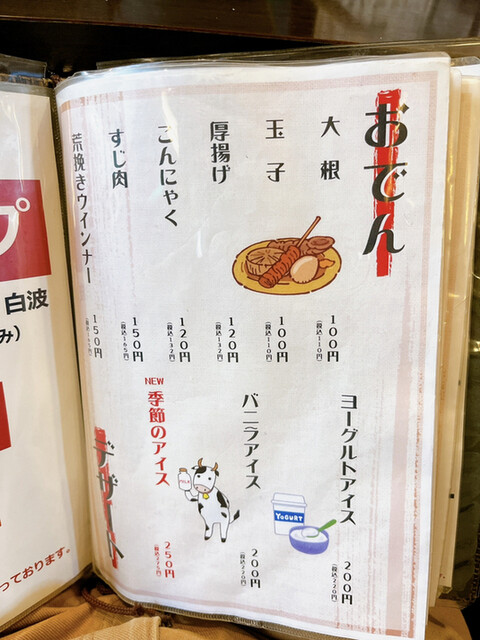 おでん
大根
100円
(税込110円)
玉子
100円
(税込110円)
厚揚げ
120円
(税込132円)
こんにゃく
120円
(税込132円)
すじ肉
150円
(税込165円)
荒挽きウインナー
150円
(税込165円)
デザート
ヨーグルトアイス
200円
(税込220円)
YOGURT
バニラアイス
200円
(税込220円)
MILK
NEW
季節のアイス
250円
(税込275円)
プ
白波
み)
っております。